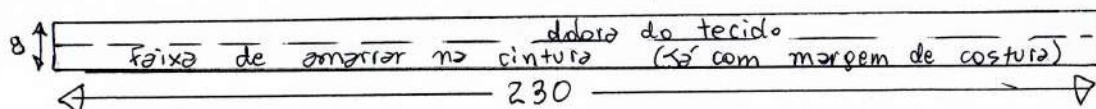 dobra do tecido
8
Faixa de amarrar na cintura (Já com margem de costura)
230